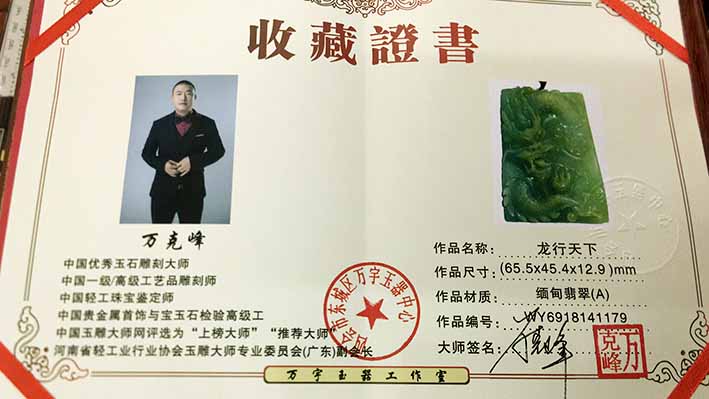 收藏證書
万克峰
中国优秀玉石雕刻大师
中国一级/高级工艺品雕刻师
中国轻工珠宝鉴定师
中国贵金属首饰与宝玉石检验高级工
中国玉雕大师网评选为“上榜大师”“推荐大师”
河南省轻工业行业协会玉雕大师专业委员会(广东)副会长
作品名称: 龙行天下
作品尺寸: (65.5x45.4x12.9)mm
作品材质: 缅甸翡翠(A)
作品编号: WY6918141179
大师签名: 万克峰
万克峰
四会市东城区万宇玉器中心
万宇玉器工作室